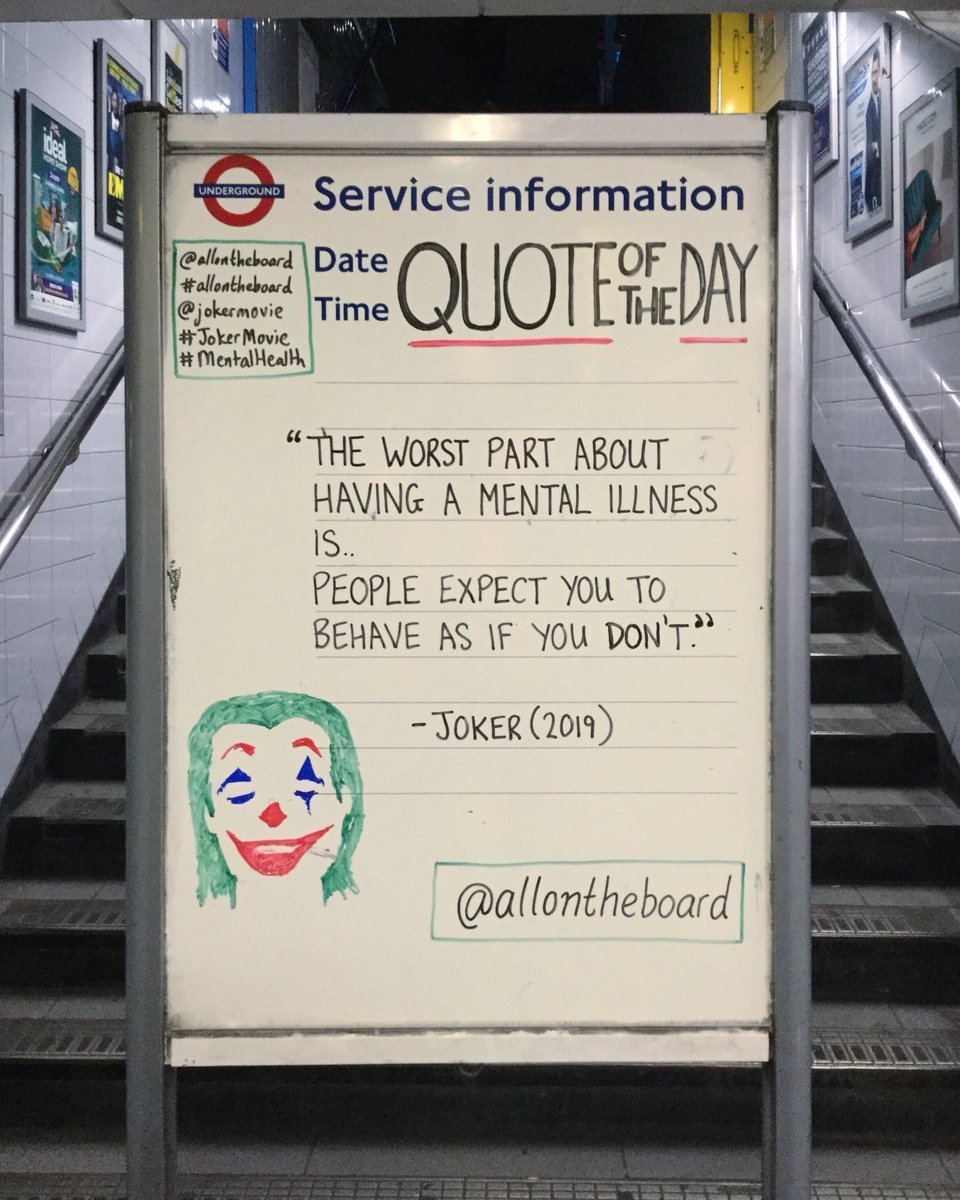 UNDERGROUND
Service information
@allontheboard
#allontheboard
@jokermovie
#JokerMovie
#MentalHealth
Date
Time
QUOTE OF THE DAY
“THE WORST PART ABOUT
HAVING A MENTAL ILLNESS
IS..
PEOPLE EXPECT YOU TO
BEHAVE AS IF YOU DON'T.”
-JOKER (2019)
@allontheboard
ideal
HOME SHOW